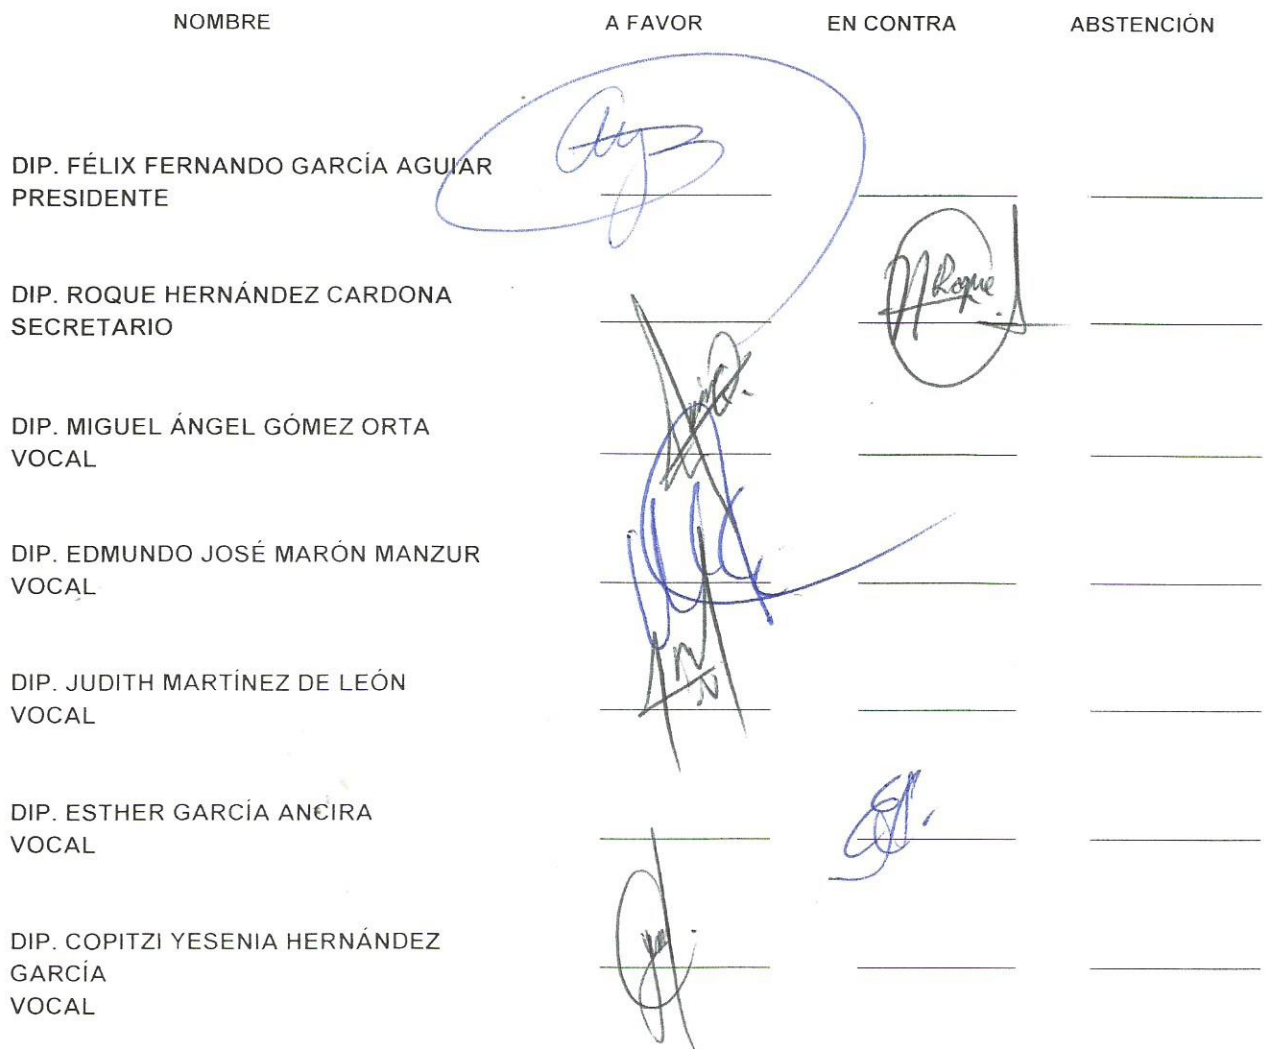 NOMBRE A FAVOR EN CONTRA ABSTENCIÓN
DIP. FÉLIX FERNANDO GARCÍA AGUIAR
PRESIDENTE
DIP. ROQUE HERNÁNDEZ CARDONA
SECRETARIO
Roque
DIP. MIGUEL ÁNGEL GÓMEZ ORTA
VOCAL
DIP. EDMUNDO JOSÉ MARÓN MANZUR
VOCAL
DIP. JUDITH MARTÍNEZ DE LEÓN
VOCAL
DIP. ESTHER GARCÍA ANCIRA
VOCAL
DIP. COPITZI YESENIA HERNÁNDEZ
GARCÍA
VOCAL